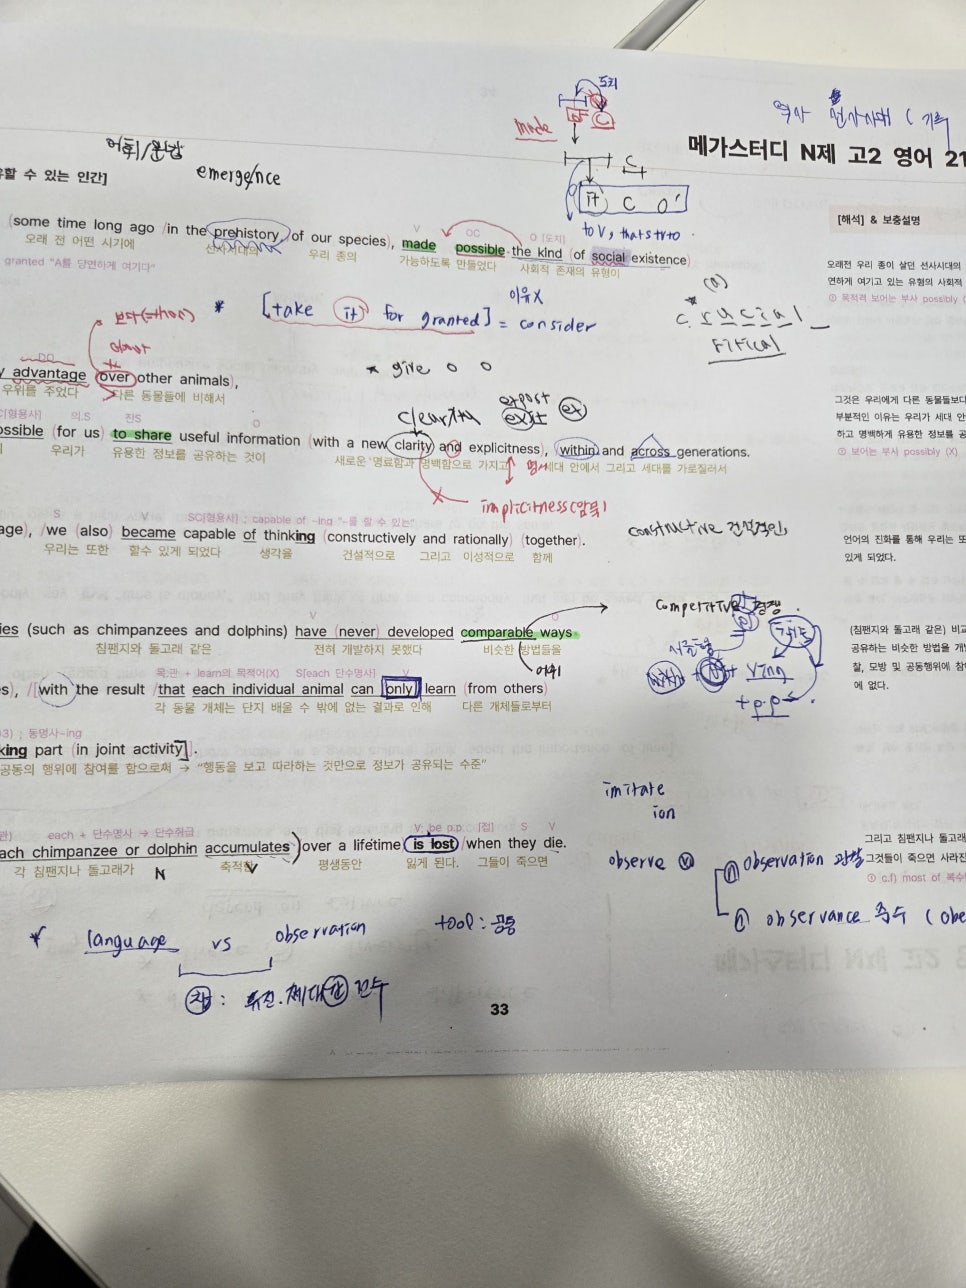 도치
made
C
역사 선사시대 ( 기록
메가스터디 N제 고2 영어 21
어휘/문장
emergence
할 수 있는 인간]
C
it C O'
to V, that s+v~
[해석] & 보충설명
(some time long ago /in the prehistory of our species), made possible the kind (of social existence)
V OC O [도치]
오래 전 어떤 시기에 선사시대의 우리 종의 가능하도록 만들었다 사회적 존재의 유형이
granted "A를 당연하게 여기다"
오래전 우리 종이 살던 선사시대의
연하게 여기고 있는 유형의 사회적
① 목적격 보어는 부사 possibly (
* [take it for granted] = consider
이유X
crucial
* give o o
advantage over other animals),
우위를 주었다 다른 동물들에 비해서
그것은 우리에게 다른 동물들보다
부분적인 이유는 우리가 세대 안
하고 명백하게 유용한 정보를 공
② 보어는 부사 possibly (X)
expost
exit ex
C[형용사] 의.S 진S O
ossible (for us) to share useful information (with a new clarity and explicitness), (within and across generations.
우리가 유용한 정보를 공유하는 것이 새로운 명료함과 명백함으로 가지고 세대 안에서 그리고 세대를 가로질러서
명사
implicitness(암묵)
S V SC[형용사] ; capable of –ing "~를 할 수 있는"
age), /we (also) became capable of thinking (constructively and rationally) (together).
우리는 또한 할수 있게 되었다 생각을 건설적으로 그리고 이성적으로 함께
constructive 건설적인
언어의 진화를 통해 우리는 또
있게 되었다.
V O
ies (such as chimpanzees and dolphins) have (never) developed comparable ways
침팬지와 돌고래 같은 전혀 개발하지 못했다 비슷한 방법들을
어휘
competitive 경쟁
+ Ving
+ p.p
(침팬지와 돌고래 같은) 비교
공유하는 비슷한 방법을 개발
찰, 모방 및 공동행위에 참여
에 없다.
목.관 + learn의 목적어(X) S[each 단수명사] V
s), /[(with the result /that each individual animal can only learn (from others)
각 동물 개체는 단지 배울 수 밖에 없는 결과로 인해 다른 개체들로부터
03) ; 동명사-ing
king part (in joint activity)].
공동의 행위에 참여를 함으로써 → "행동을 보고 따라하는 것만으로 정보가 공유되는 수준"
imitate
ion
관) each + 단수명사 → 단수취급 V: be p.p. [접] S V
ach chimpanzee or dolphin accumulates) over a lifetime (is lost) /when they die.
각 침팬지나 돌고래가 축적한 평생동안 잃게 된다. 그들이 죽으면
N V
observe ⓥ
ⓝ observation 관찰
ⓝ observance 준수 (obe
그리고 침팬지나 돌고래
그것들이 죽으면 사라진
① c.f) most of 복수
* language vs observation
tool : 공통
33